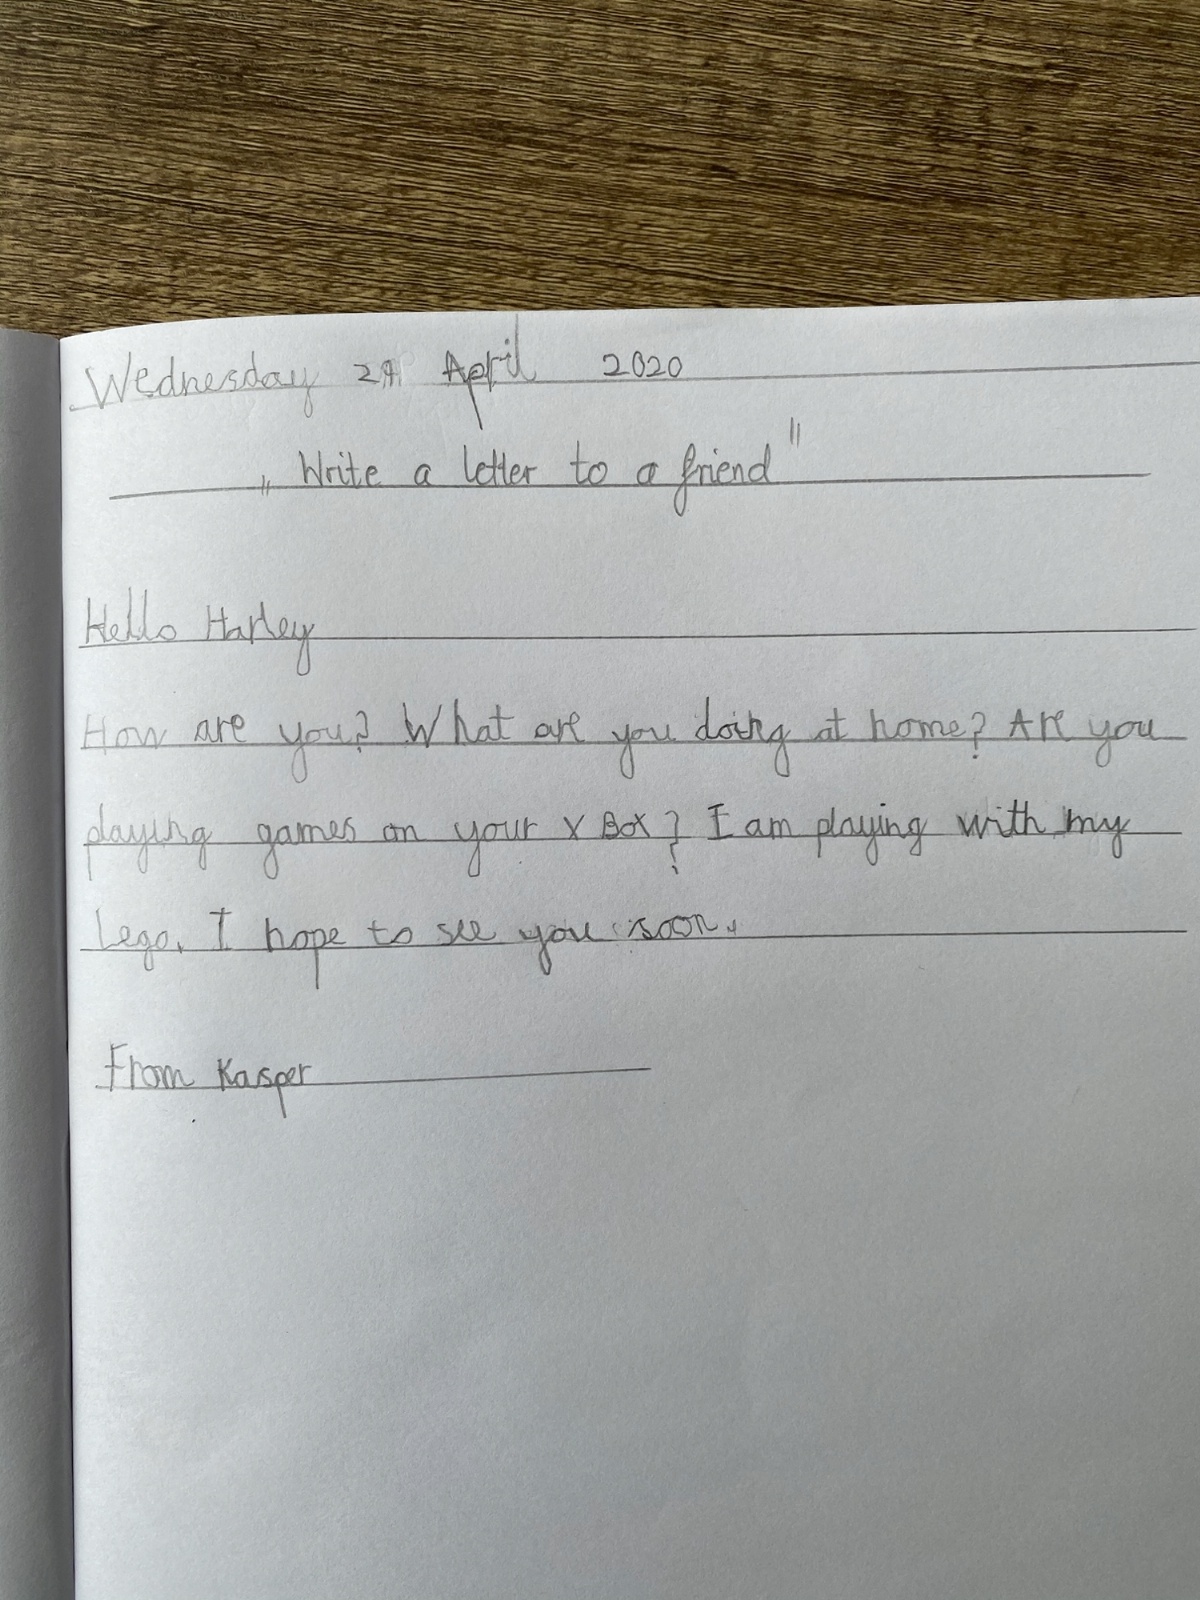 Wednesday 29 April 2020
„ Write a letter to a friend "
Hello Harley
How are you? What are you doing at home? Are you
playing games on your X Box? I am playing with my
Lego. I hope to see you soon.
From Kasper